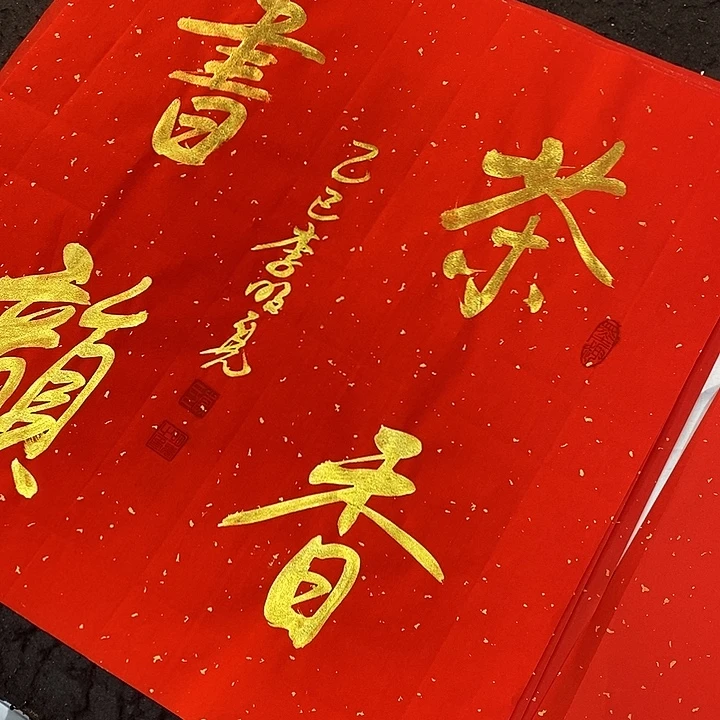 茶香
書韻
乙巳李明亮